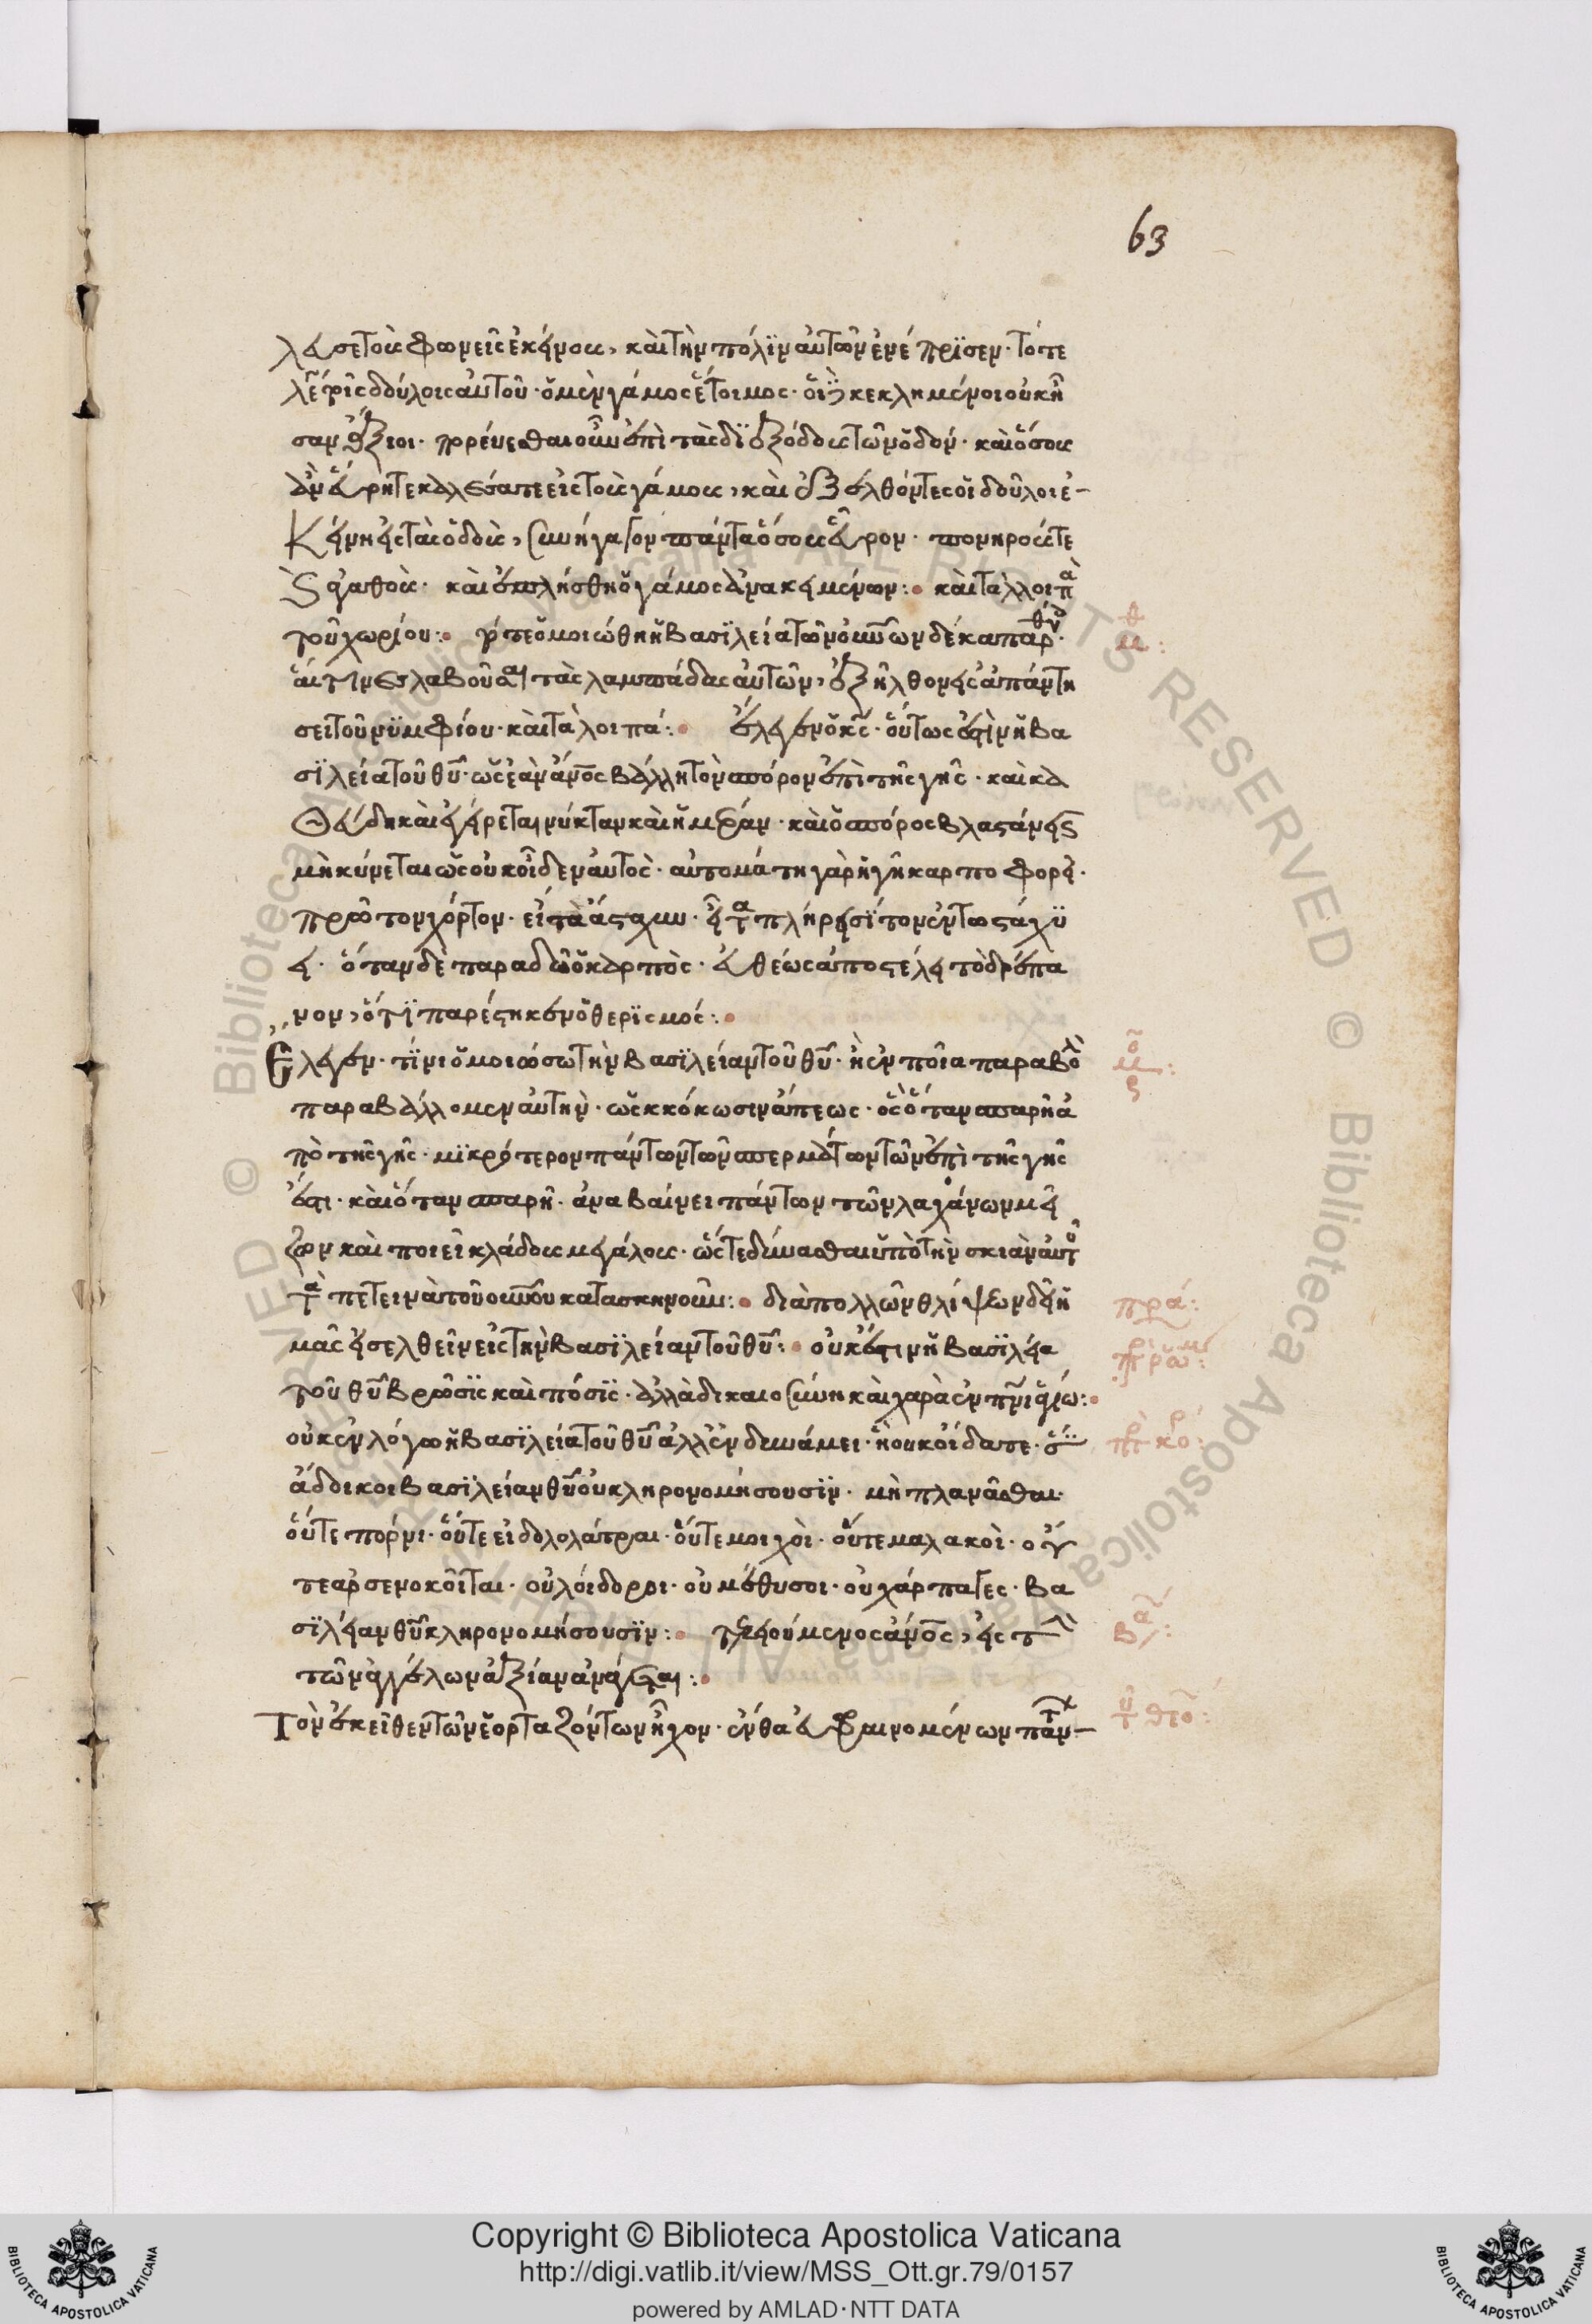 63
λεσε τοὺς φωνεῖς ἐκείνους, καὶ τὴν πόλϊν αὐτῶν ἐνέπρϊσεν· τότε
λέγει τοῖς δούλοις αὐτοῦ· ὁ μὲν γάμος ἕτοιμος· οἱ δὲ κεκλημένοι οὐκ ἦ
σαν ἄξιοι· πορεύεσθαι οὖν ἐπὶ τὰς δϊεξόδους τῶν ὁδόν· καὶ ὅσους
ἂν εὕρητε καλέσατε εἰς τοὺς γάμους, καὶ ἐξελθόντες οἱ δοῦλοι ἐ-
κείνη εἰς ταῖς ὁδοὺς, συνήγαγον πάντα ὅσους εὗρον· πονηροὺς τε
καὶ ἀγαθοὺς· καὶ ἐπλήσθη ὁ γάμος ἀνακειμένων:· καὶ τὰ λλοιπὰ
τοῦ χωρίου:· τότε ὁμοιώθη ἡ βασϊλεία τῶν οὐνῶν δέκα παρθέν·
αἵτινες λαβοῦσαι τὰς λαμπάδας αὐτῶν, ἐξῆλθον εἰς ἀπάντη
σει τοῦ νϋμφίου· καὶ τὰ λοιπά:· ἔλεγεν ὁ κς· οὕτως ἐστὶν ἡ βα
σϊλεία τοῦ θυ· ὡς ἐὰν ἄνος βάλλη τὸν σπόρον ἐπὶ τῆς γῆς· καὶ κα
θεύδη καὶ ἐγείρεται νύκταν καὶ ἡμέραν· καὶ ὁ σπόρος βλαστάνει καὶ
μὴκύνεται ὡς οὐκ οἶδεν αὐτὸς· αὐτομάτη γὰρ ἡ γῆ καρποφορεῖ·
πρῶτον χόρτον· εἶτα ἄσταχυν· εἶτα πλήρη σῖτον ἐν τω στάχϋ
ει· ὅταν δὲ παραδῶ ὁ καρπὸς· εὐθέως ἀποστέλει τὸ δρέπα
νον, ὅτϊ παρέστηκεν ὁ θερϊσμός:·
Ἔλεγεν· τίνι ὁμοιώσω τὴν βασϊλείαν τοῦ θυ· ἢ ἐν ποῖα παραβολὴ
παραβάλλομεν αὐτὴν· ὡς κκόκω σινάπεως· ὃς ὅταν σπαρῆ ἀ
πὸ τῆς γῆς· μϊκρότερον πάντων τῶν σπερμάτων τῶν ἐπὶ τῆς γῆς
ἐστι· καὶ ὅταν σπαρῆ· ἀναβαίνει πάντων τῶν λαχάνων μεῖ
ζων καὶ ποιεῖ κλάδους μεγάλους· ὥστε δύνασθαι ὑπὸ τὴν σκιὰν αὐτοῦ
τὰ πετεινὰ τοῦ οὐνοῦ κατασκηνοῦν:· διὰ πολλῶν θλίψεων δεῖ ἡ
μᾶς εἰσελθεῖν εἰς τὴν βασϊλείαν τοῦ θυ:· οὐκ ἔστιν ἡ βασϊλεία
τοῦ θυ βρῶσϊς καὶ πόσϊς· ἀλλὰ δικαιοσύνη καὶ χαρὰ ἐν πνι ἁγίω:·
οὐκ ἐν λόγω ἡ βασϊλεία τοῦ θυ ἀλλ' ἐν δυνάμει· ἢ ουκ οἴδατε· ὅτι
ἄδδικοι βασϊλείαν θυ οὐ κληρονομήσουσϊν· μὴ πλανᾶσθαι·
οὔτε πόρνι· οὔτε εἰδολολάτραι· οὔτε μοιχοὶ· οὔτε μαλακοὶ· οὔ
τε αρσενοκοῖται· οὐ λοίδοροι· οὐ μέθυσοι· οὐχ ἅρπαγες· βα
σϊλείαν θυ κληρονομήσουσϊν:· γενούμενος ἄνος, εἰς τὴν
τῶν ἀγγέλων ἀξίαν ἀνάγεται:·
Τὸν ἐκεῖθεν τῶν ἑορταζόντων ἦχον· ἔνθα εὐφραινομένων πάντ-
Copyright © Biblioteca Apostolica Vaticana
http://digi.vatlib.it/view/MSS_Ott.gr.79/0157
powered by AMLAD·NTT DATA